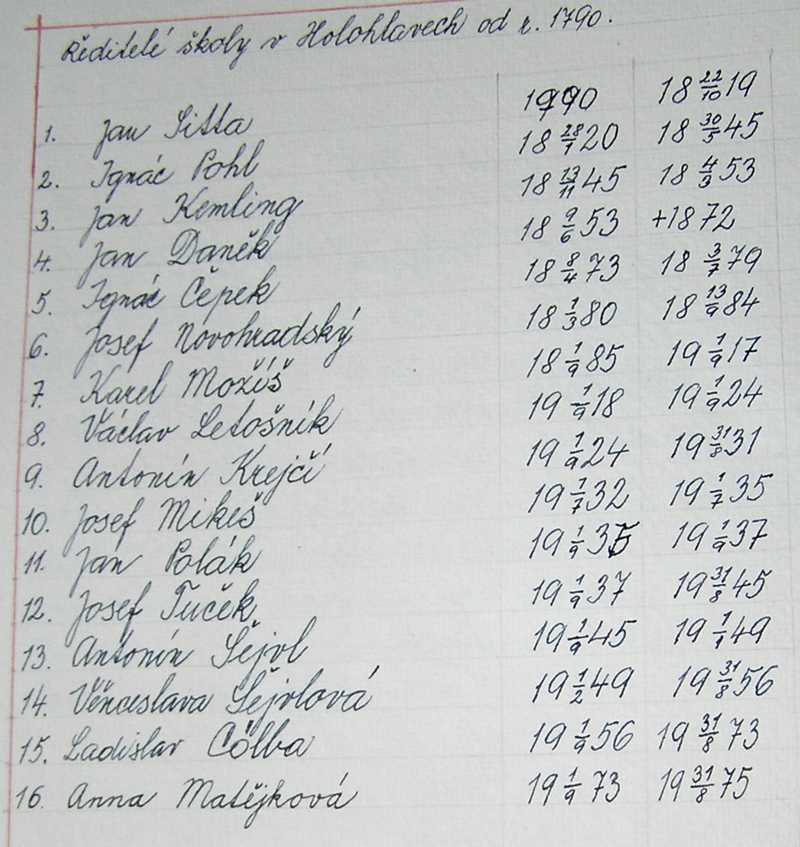 Ředitelé školy v Holohlavech od r. 1790.
1. Jan Sitta 1790 18 22/10 19
2. Ignác Pohl 18 28/7 20 18 30/5 45
3. Jan Kemling 18 13/11 45 18 4/3 53
4. Jan Daněk 18 9/6 53 +1872
5. Ignác Čepek 18 8/4 73 18 3/7 79
6. Josef Novohradský 18 1/3 80 18 13/9 84
7. Karel Možíš 18 1/9 85 19 1/9 17
8. Václav Letošník 19 1/9 18 19 1/9 24
9. Antonín Krejčí 19 1/9 24 19 31/8 31
10. Josef Mikeš 19 1/7 32 19 1/7 35
11. Jan Polák 19 1/9 35 19 1/9 37
12. Josef Tuček 19 1/9 37 19 31/8 45
13. Antonín Šejvl 19 1/9 45 19 1/1 49
14. Věnceslava Šejvlová 19 1/2 49 19 31/8 56
15. Ladislav Cölba 19 1/9 56 19 31/8 73
16. Anna Matějková 19 1/9 73 19 31/8 75